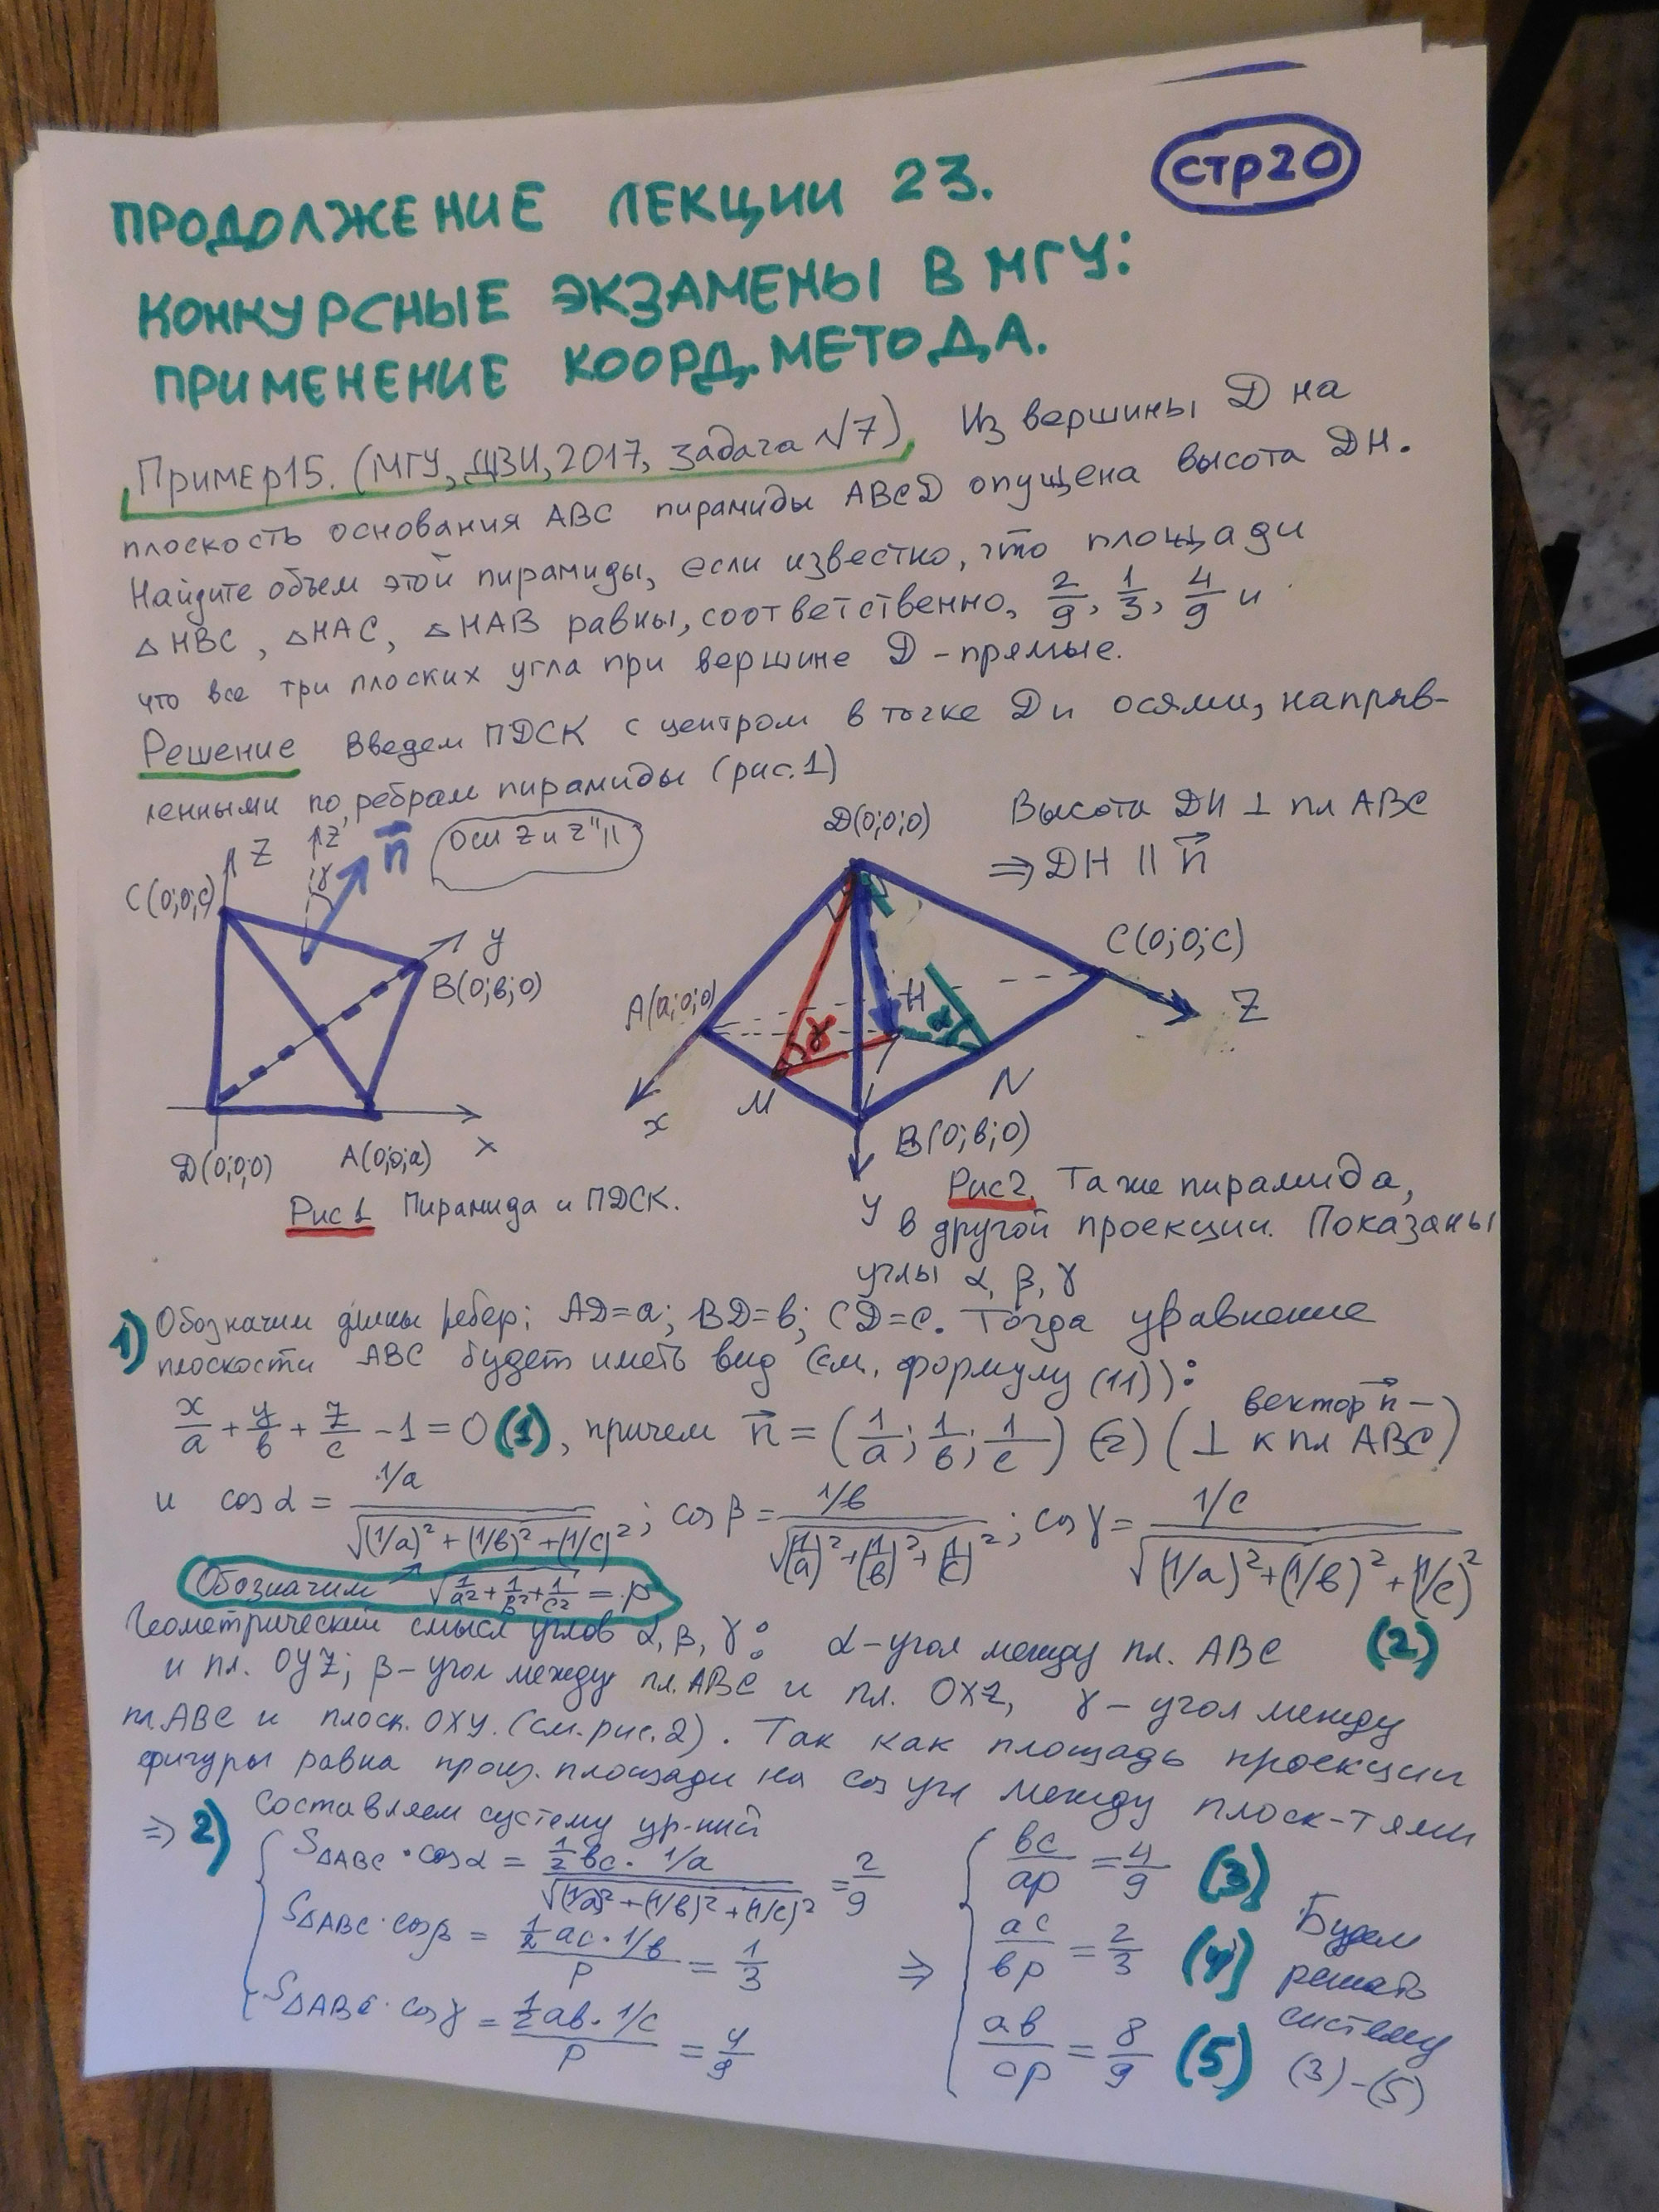 стр20
ПРОДОЛЖЕНИЕ ЛЕКЦИИ 23.
КОНКУРСНЫЕ ЭКЗАМЕНЫ В МГУ:
ПРИМЕНЕНИЕ КООРД. МЕТОДА.
Пример15. (МГУ, ДВИ, 2017, задача №7). Из вершины D на
плоскость основания ABC пирамиды ABCD опущена высота DH.
Найдите объем этой пирамиды, если известно, что площади
△HBC, △HAC, △HAB равны, соответственно, 2/9, 1/3, 4/9 и
что все три плоских угла при вершине D - прямые.
Решение Введем ПДСК с центром в точке D и осями, направ-
ленными по ребрам пирамиды (рис.1)
Z Z' γ n⃗ Оси Z и Z" ||
C(0;0;c)
y
B(0;в;0)
D(0;0;0) A(0;0;a) x
Рис 1 Пирамида и ПДСК.
D(0;0;0)
Высота DH ⊥ пл ABC
⇒ DH || n⃗
C(0;0;c)
A(a;0;0) H α Z
γ
x M N
B(0;в;0)
y
Рис2. Та же пирамида,
в другой проекции. Показаны
углы α, β, γ
1) Обозначим длины ребер; AD=a; BD=в; CD=c. Тогда уравнение
плоскости ABC будет иметь вид (см. формулу (11)):
x/a + y/в + z/c - 1 = 0 (1), причем n⃗ = (1/a; 1/в; 1/c) (2) (вектор n⃗ - ⊥ к пл ABC)
и cos α = 1/a / √((1/a)² + (1/в)² + (1/c)²; cos β = 1/в / √((1/a)² + (1/в)² + (1/c)²; cos γ = 1/c / √((1/a)² + (1/в)² + (1/c)²
Обозначим √(1/a² + 1/в² + 1/c²) = p
(2)
Геометрический смысл углов α, β, γ: α - угол между пл. ABC
и пл. OYZ; β - угол между пл. ABC и пл. OXZ, γ - угол между
пл. ABC и плоск. OXY. (см. рис. 2). Так как площадь проекции
фигуры равна произ. площади на cos угл между плоск-тями
⇒ 2) Составляем систему ур-ний
S△ABC · cos α = ½ вc · 1/a / √((1/a)² + (1/в)² + (1/c)² = 2/9
S△ABC · cos β = ½ ac · 1/в / p = 1/3
S△ABC · cos γ = ½ aв · 1/c / p = 4/9
⇒
вc/ap = 4/9 (3)
ac/вp = 2/3 (4)
aв/cp = 8/9 (5)
Будем
решать
систему
(3)-(5)